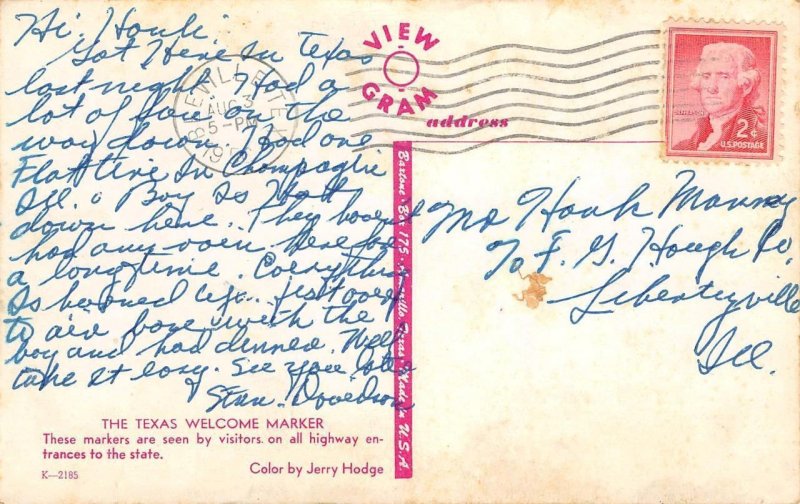 Hi. Honk.
Got Here In Texas
last night. Had a
lot of fun on the
way down. Had one
Flat tire In Champagne
Ill. o Boy Is Hott
down here. They haven't
had any rain here for
a long time. Everything
Is burned up. just over
to air base with the
boy and had dinner. Well
take it easy. See you later
Stan. Davidson
THE TEXAS WELCOME MARKER
These markers are seen by visitors on all highway en-
trances to the state.
K—2185
Color by Jerry Hodge
BEEVILLE TEX
AUG 3
5-PM
19
VIEW
GRAM
address
Baxtone Box 175 Amarillo, Texas Made in U.S.A.
2¢
U.S. POSTAGE
Mr Hank
% F. G. Hough Co.
Libertyville
Ill.